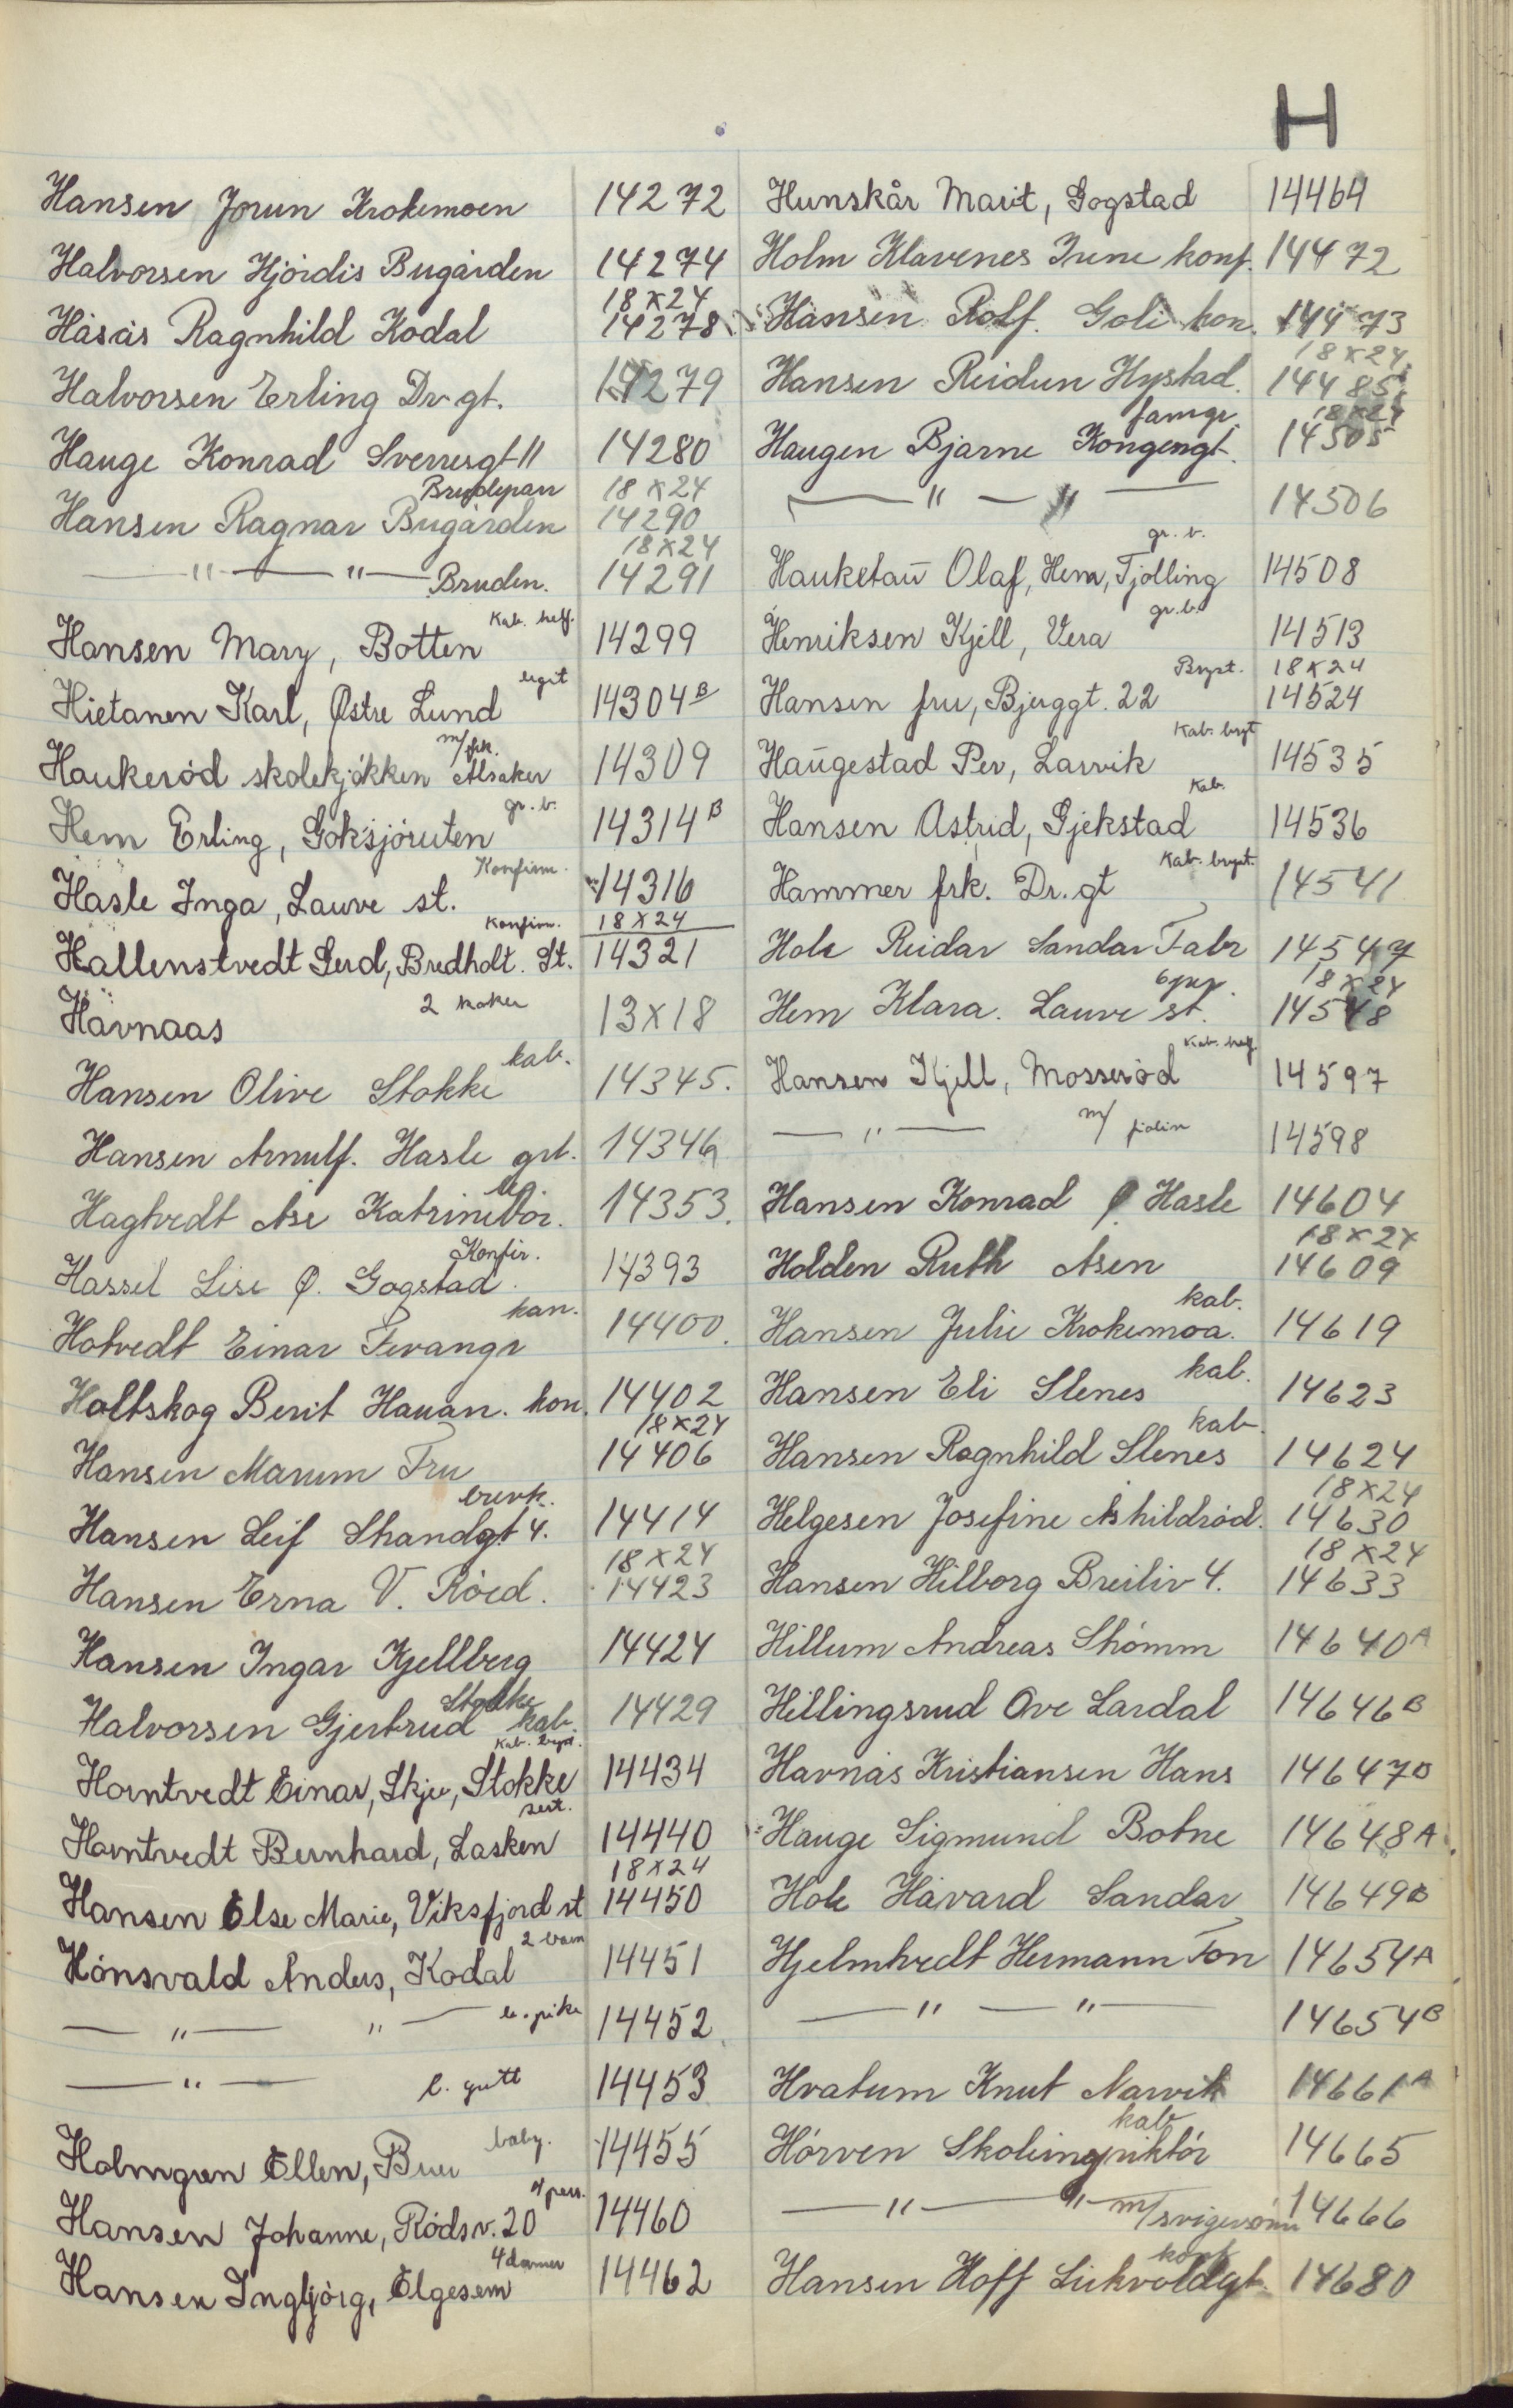 H
Hansen Jorun Krokemoen 14272
Halvorsen Hjördis Bugården 14274
18x24
Håsås Ragnhild Kodal 14278
Halvorsen Erling Dr.gt. 14279
Hauge Konrad Sverresgt 11 14280
Brudepar 18x24
Hansen Ragnar Bugården 14290
18x24
— " — " — Bruden. 14291
Kab. helf.
Hansen Mary, Botten 14299
Hietanen Karl, Østre Lund 14304 B
m/frk.
Haukeröd skolekjökken Alsaker 14309
gr. b.
Hem Erling, Goksjöruten 14314 B
Konfirm.
Hasle Inga, Lauve st. 14316
Konfirm. 18x24
Hallenstvedt Gerd, Bredholt. St. 14321
2 kaker
Håvnaas 13x18
kab.
Hansen Olive Stokke 14345.
Hansen Arnulf. Hasle grt. 14346
Hagtvedt Åse Katrinebor. 14353.
Konfir.
Hassel Lise Ø. Gogstad. 14393
kan.
Hotvedt Einar Fevangr 14400.
Holtskog Berit Hauan. kon. 14402
18x24
Hansen Marum Fru 14406
brevk.
Hansen Leif Strandgt 4. 14414
18x24
Hansen Erna V. Röed. 14423
Hansen Ingar Kjellberg 14424
Stokke
Halvorsen Gjertrud kab. 14429
Kab. bryst.
Horntvedt Einar, Skjee, Stokke 14434
Horntvedt Bernhard, Lasken 14440
18x24
Hansen Else Marie, Viksfjord st 14450
2 barn
Hönsvald Anders, Kodal 14451
— " — " — l. pike 14452
— " — l. gutt 14453
baby.
Holmgren Ellen, Bruu 14455
4 pers.
Hansen Johanne, Rödsv. 20 14460
4 damer
Hansen Ingbjörg, Elgesem 14462
Hunskår Marit, Gogstad 14464
Holm Klavenes Irene konf. 14472
Hansen Rolf. Goli kon. 14473
18x24
Hansen Reidun Hystad. 14485
famgr. 18x24
Haugen Bjarne Kongengt. 14505
— " — " — 14506
gr. b.
Hauketau Olaf, Hem, Tjölling 14508
gr. b.
Henriksen Kjell, Vera 14513
Bryst. 18x24
Hansen fru, Bjerggt. 22 14524
Kab. bryst
Haugestad Per, Larvik 14535
Kab.
Hansen Astrid, Gjekstad 14536
Kab. bryst.
Hammer frk. Dr. gt 14541
Hole Reidar Sandar Fabr 14547
18x24
Hem Klara. Lauve st. 14548
Kab. helf.
Hansen Kjell, Mosseröd 14597
— " — m/ fiolin 14598
Hansen Konrad Ø Hasle 14604
18x24
Holden Ruth Åsen 14609
kab.
Hansen Julie Krokemoa. 14619
kab.
Hansen Eli Slenes 14623
kab.
Hansen Ragnhild Slenes 14624
18x24
Helgesen Josefine Åshildröd. 14630
18x24
Hansen Hilborg Breiliv 4. 14633
Hillum Andreas Skömm 14640 A
Hillingsrud Ove Lardal 14646 B
Havnås Kristiansen Hans 14647 B
Hauge Sigmund Botne 14648 A.
Hole Håvard Sandar 14649 B
Hjelmtvedt Hermann Ton 14654 A
— " — " — 14654 B
Hvatum Knut Narvik 14661 A
kab
Hörven Skoleinspiktör 14665
— " — " — m/svigersönn 14666
Hansen Hoff 14680